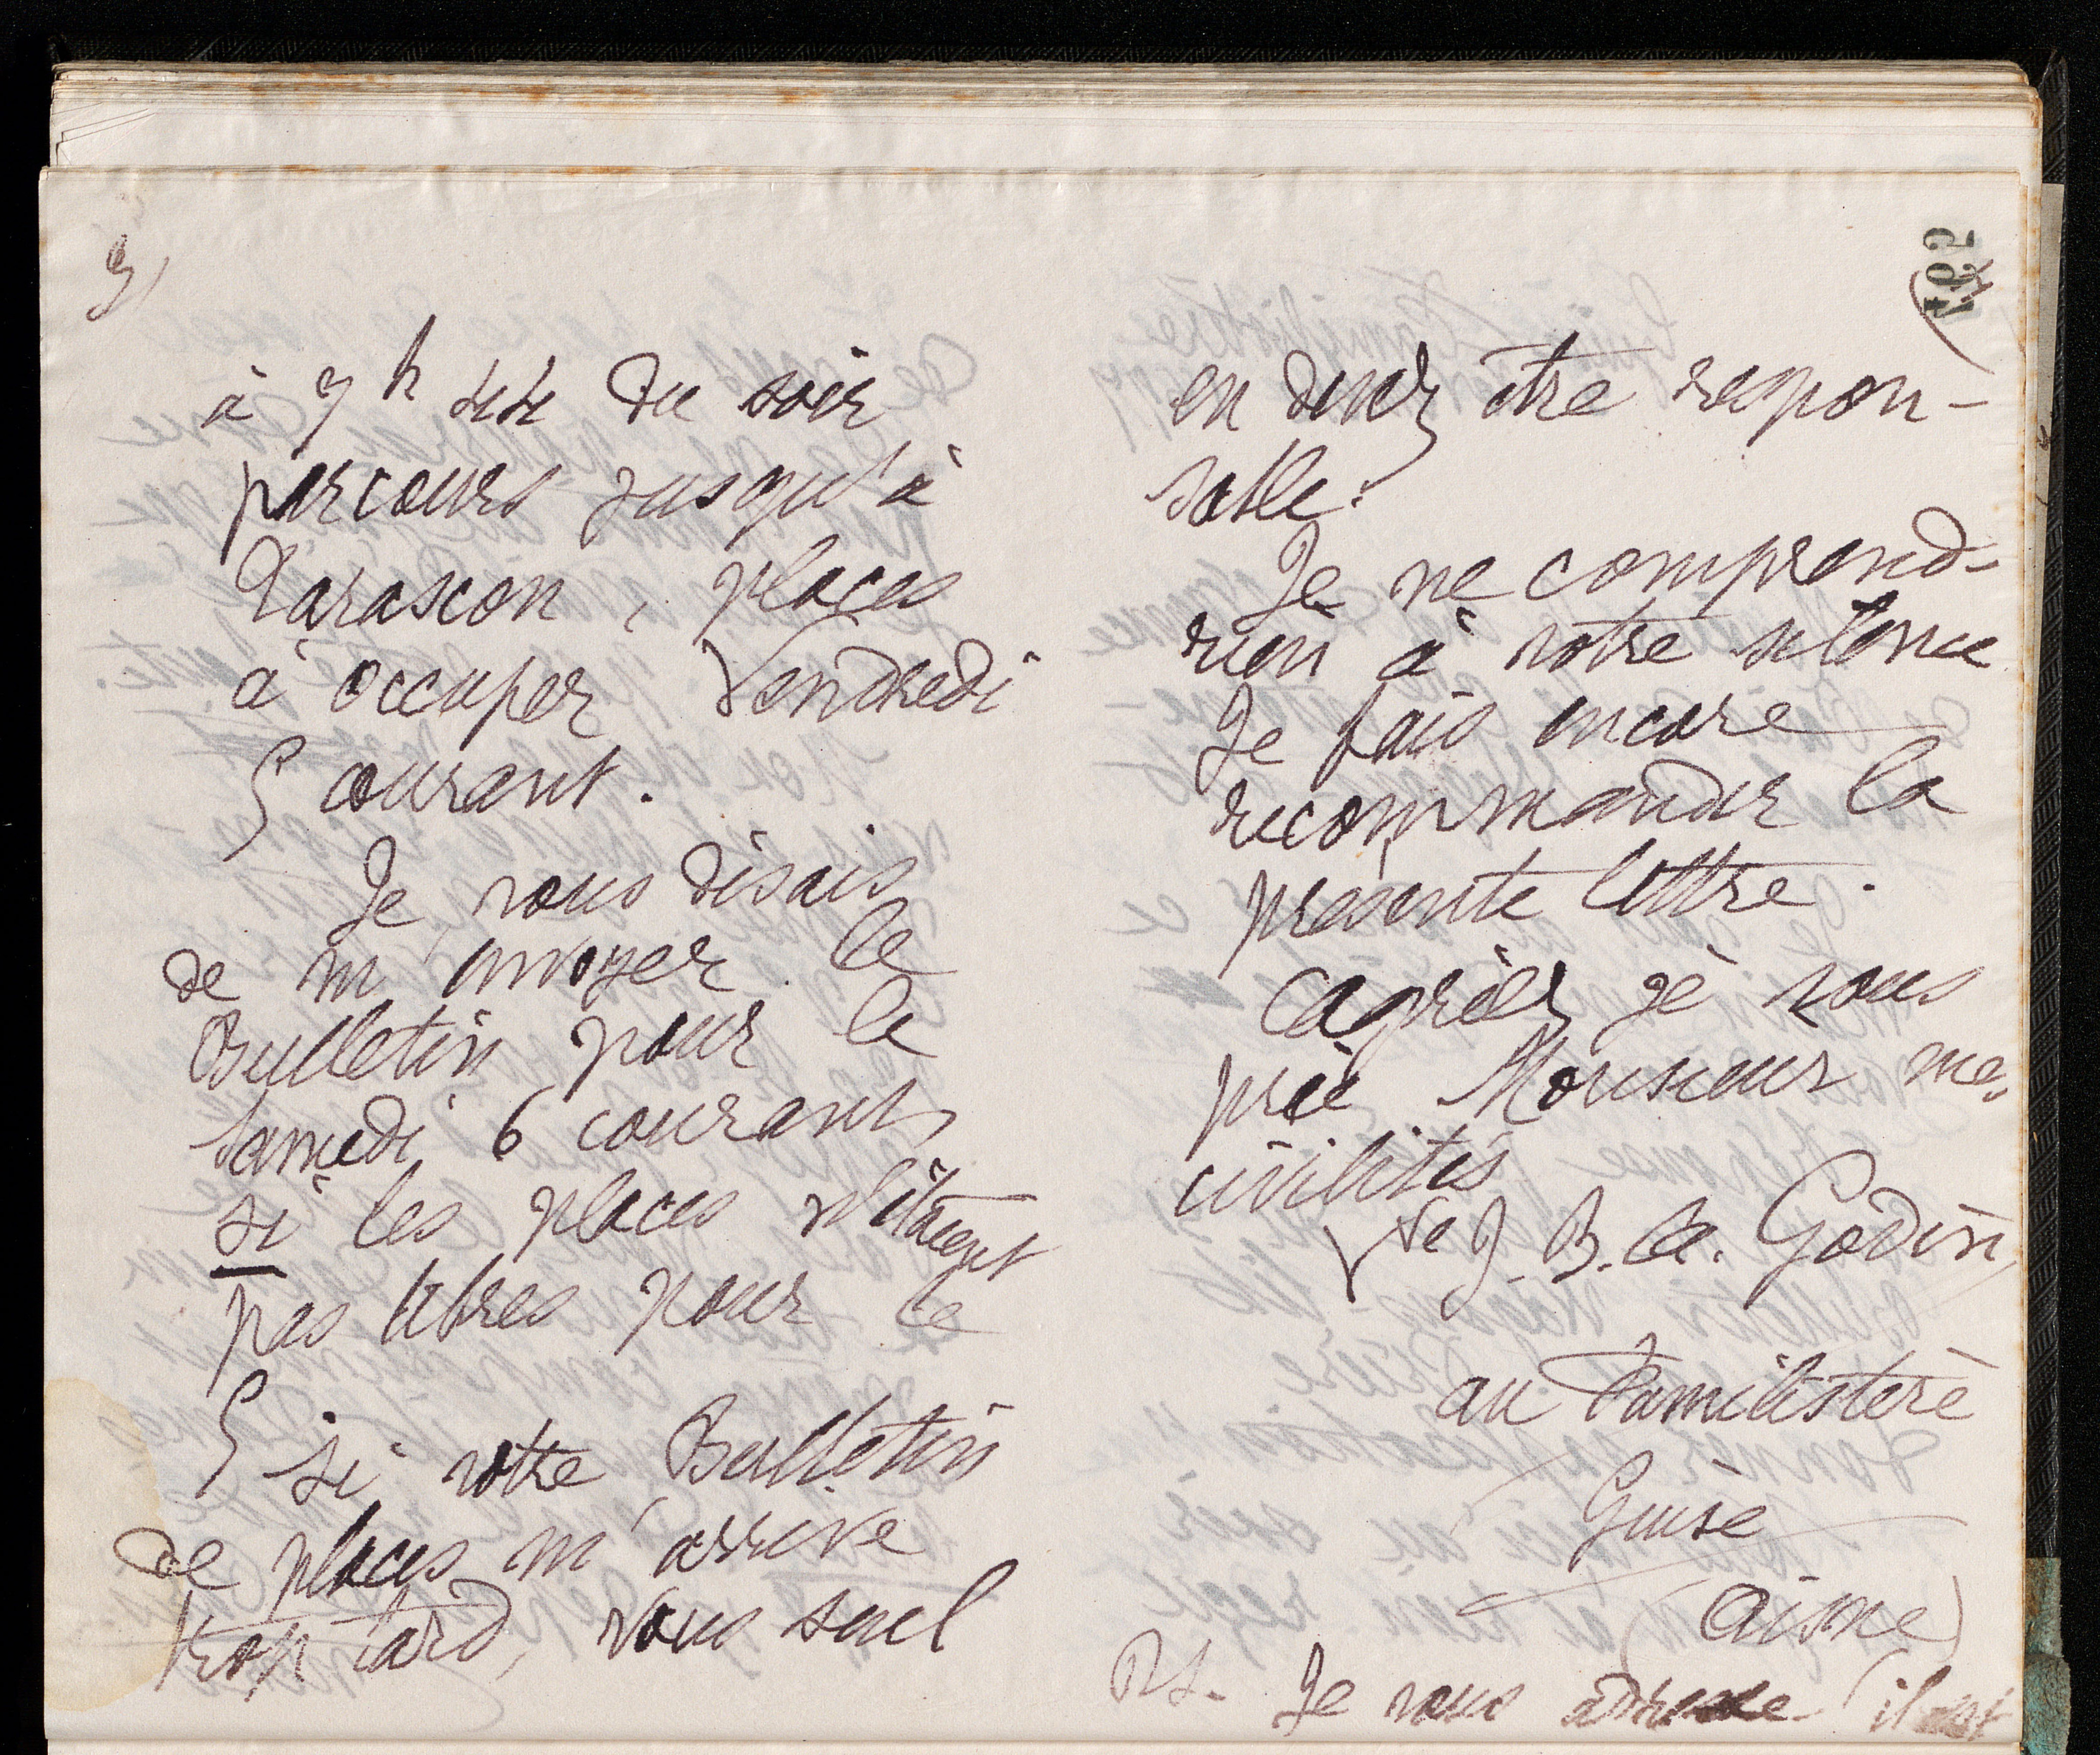 à 7h du soir
parcours jusqu'à
Tarascon, places
à occuper Vendredi
5 courant.
Je vous disais
de m'envoyer le
Bulletin pour le
Samedi 6 courant,
si les places n'étaient
pas libres pour le
5 si votre Bulletin
de places m'arrive
trop tard, vous seul
en devez être respon-
sable.
Je ne comprend
rien à votre silence
Je fais encore
recommander la
présente lettre.
Agréez je vous
prie Monsieur mes
civilités
Ve J. B. A. Godin,
au Familistère
Guise
(Aisne)
PS. Je vous adresse (il est